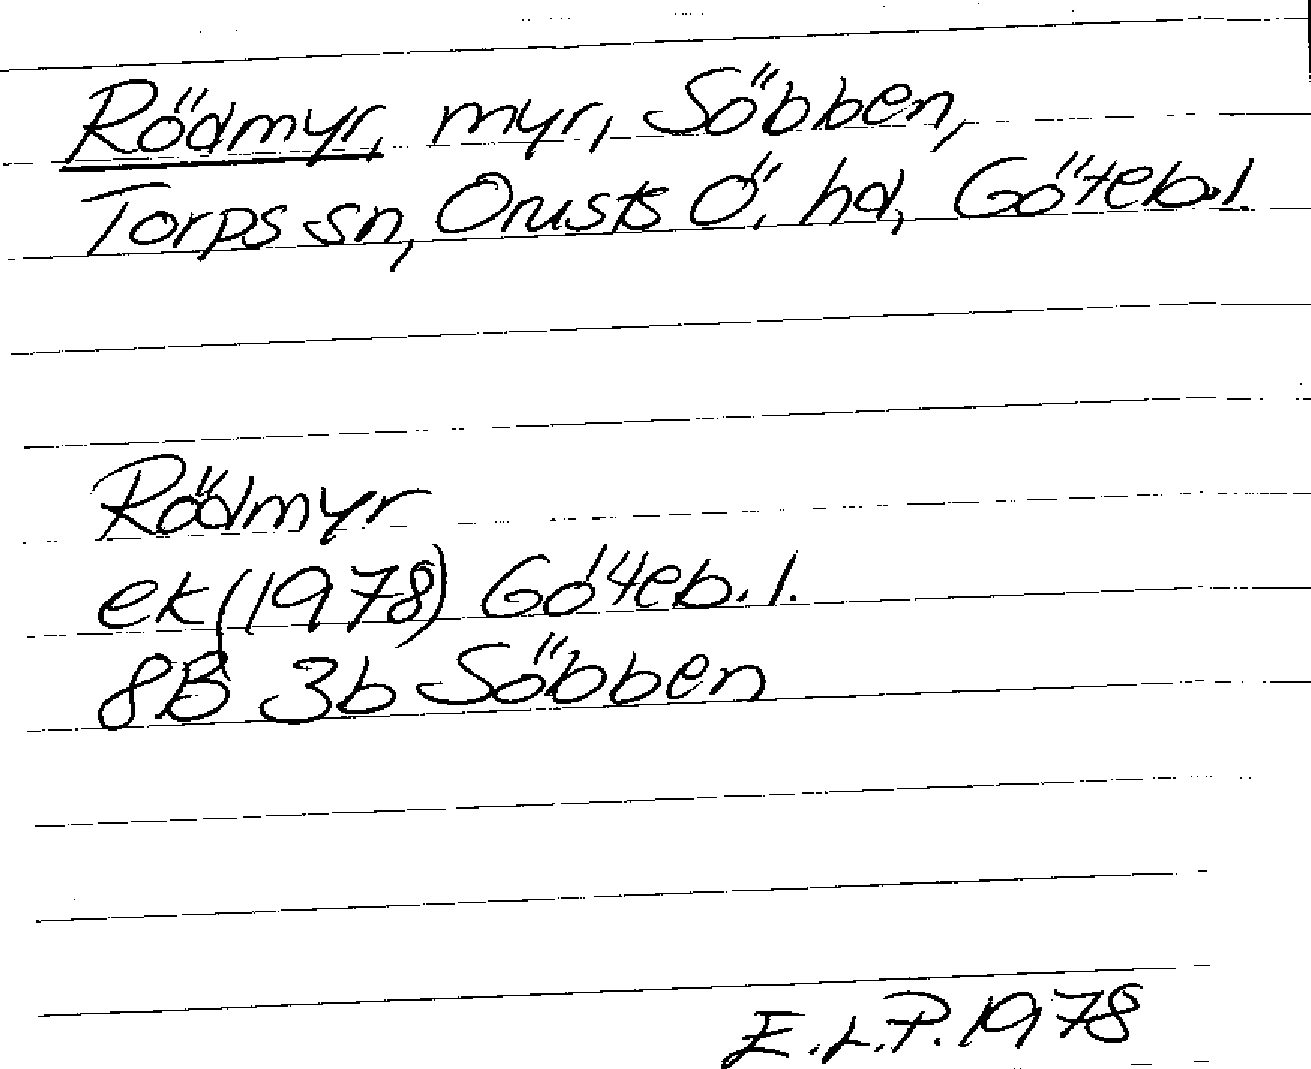 Rödmyr, myr, Söbben,
Torps sn, Orusts Ö. hd, Göteb.l.
Rödmyr
ek (1978) Göteb. l.
8B 3b Söbben
E.L.P. 1978